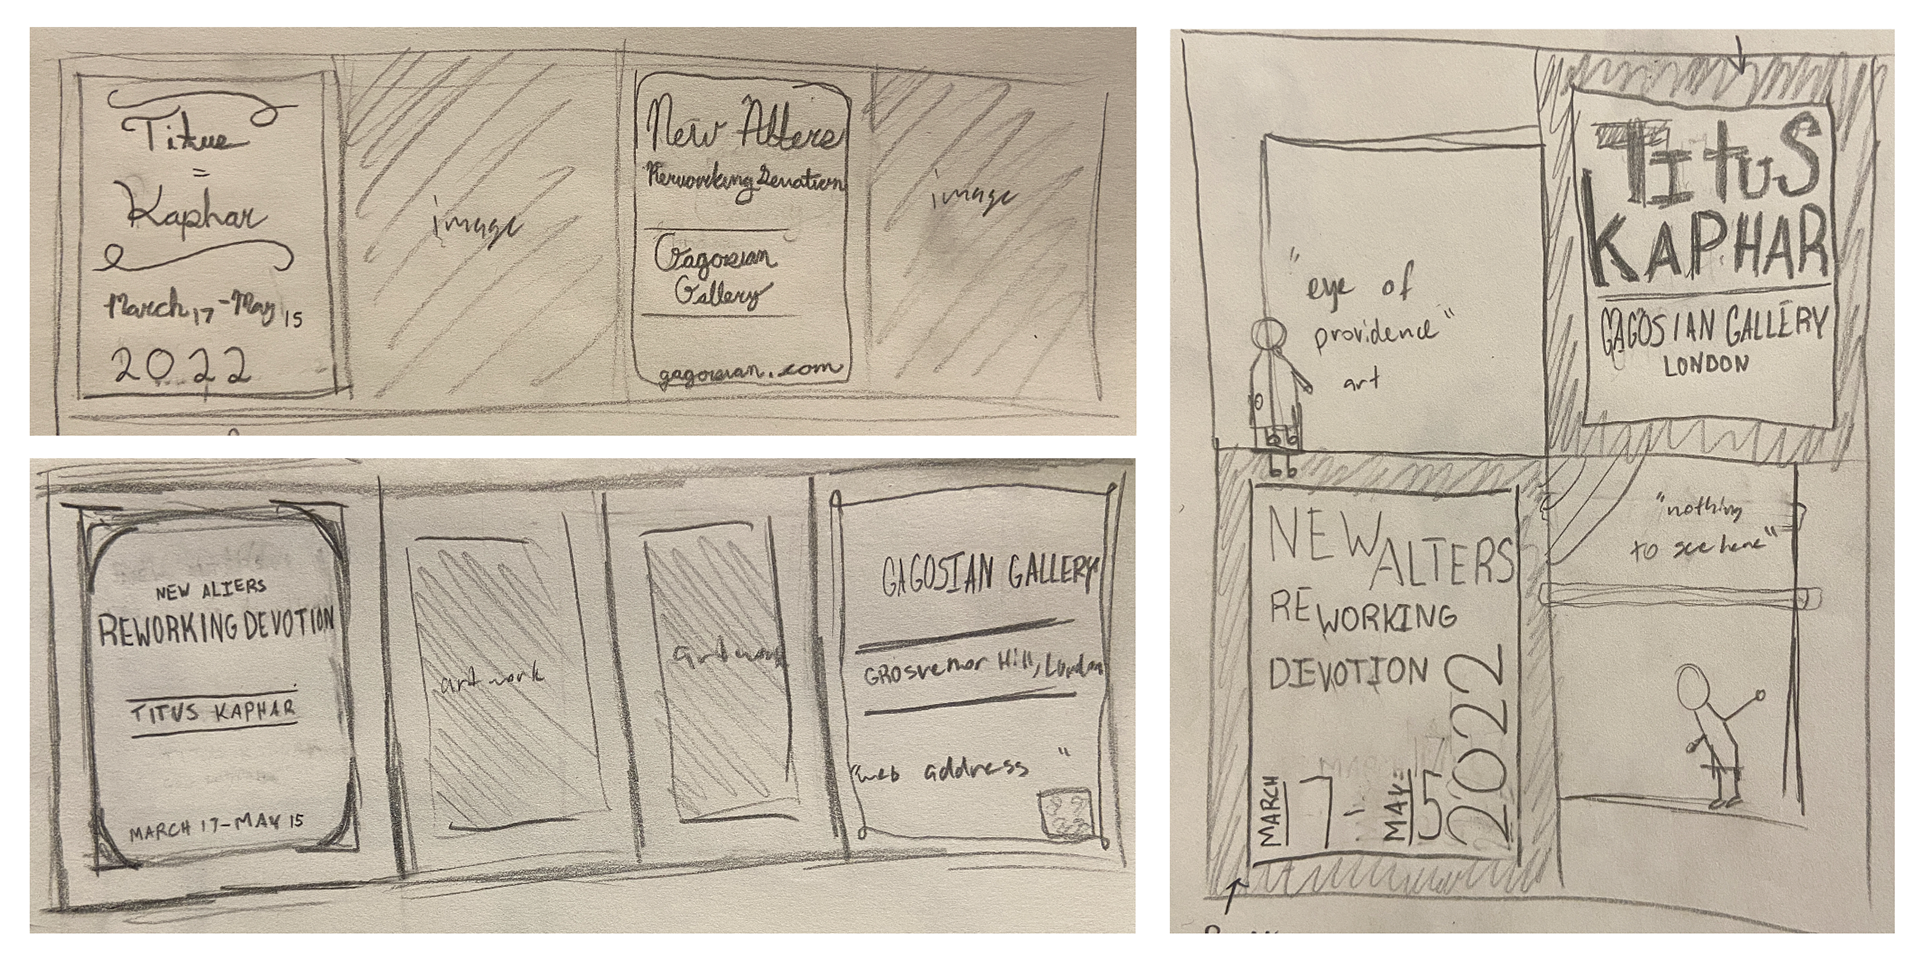 Titus
Kaphar
March 17 - May 15
2022
image
New Alters
Reworking Devotion
Gagosian
Gallery
gagosian.com
image
NEW ALTERS
REWORKING DEVOTION
TITUS KAPHAR
MARCH 17-MAY 15
artwork
artwork
GAGOSIAN GALLERY
GROSVENOR Hill, London
"web address"
"eye of
providence"
art
TITUS
KAPHAR
GAGOSIAN GALLERY
LONDON
NEW ALTERS
REWORKING
DEVOTION
MARCH 17 - MAY 15
2022
"nothing
to see here"